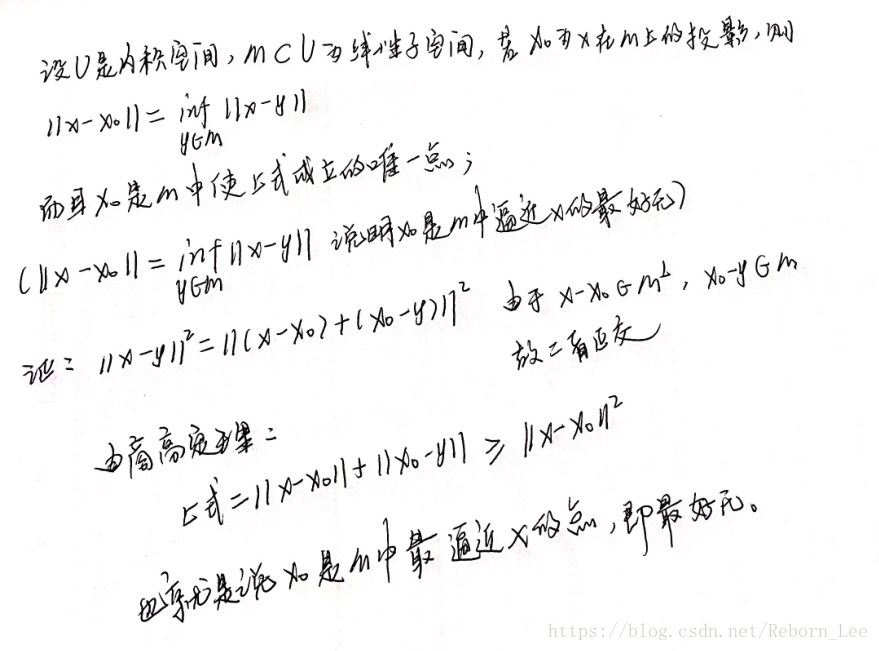 设U是内积空间, M⊂U为线性子空间, 若x₀为x在M上的投影, 则
||x-x₀|| = inf ||x-y||
y∈M
而且x₀是M中使上式成立的唯一点;
(||x-x₀|| = inf ||x-y|| 说明x₀是M中逼近x的最好元)
y∈M
证: ||x-y||² = ||(x-x₀)+(x₀-y)||² 由于 x-x₀∈M⊥, x₀-y∈M
故二者正交
由商高定理:
上式=||x-x₀||+||x₀-y|| ≥ ||x-x₀||²
也就是说x₀是M中最逼近x的点, 即最好元。
https://blog.csdn.net/Reborn_Lee